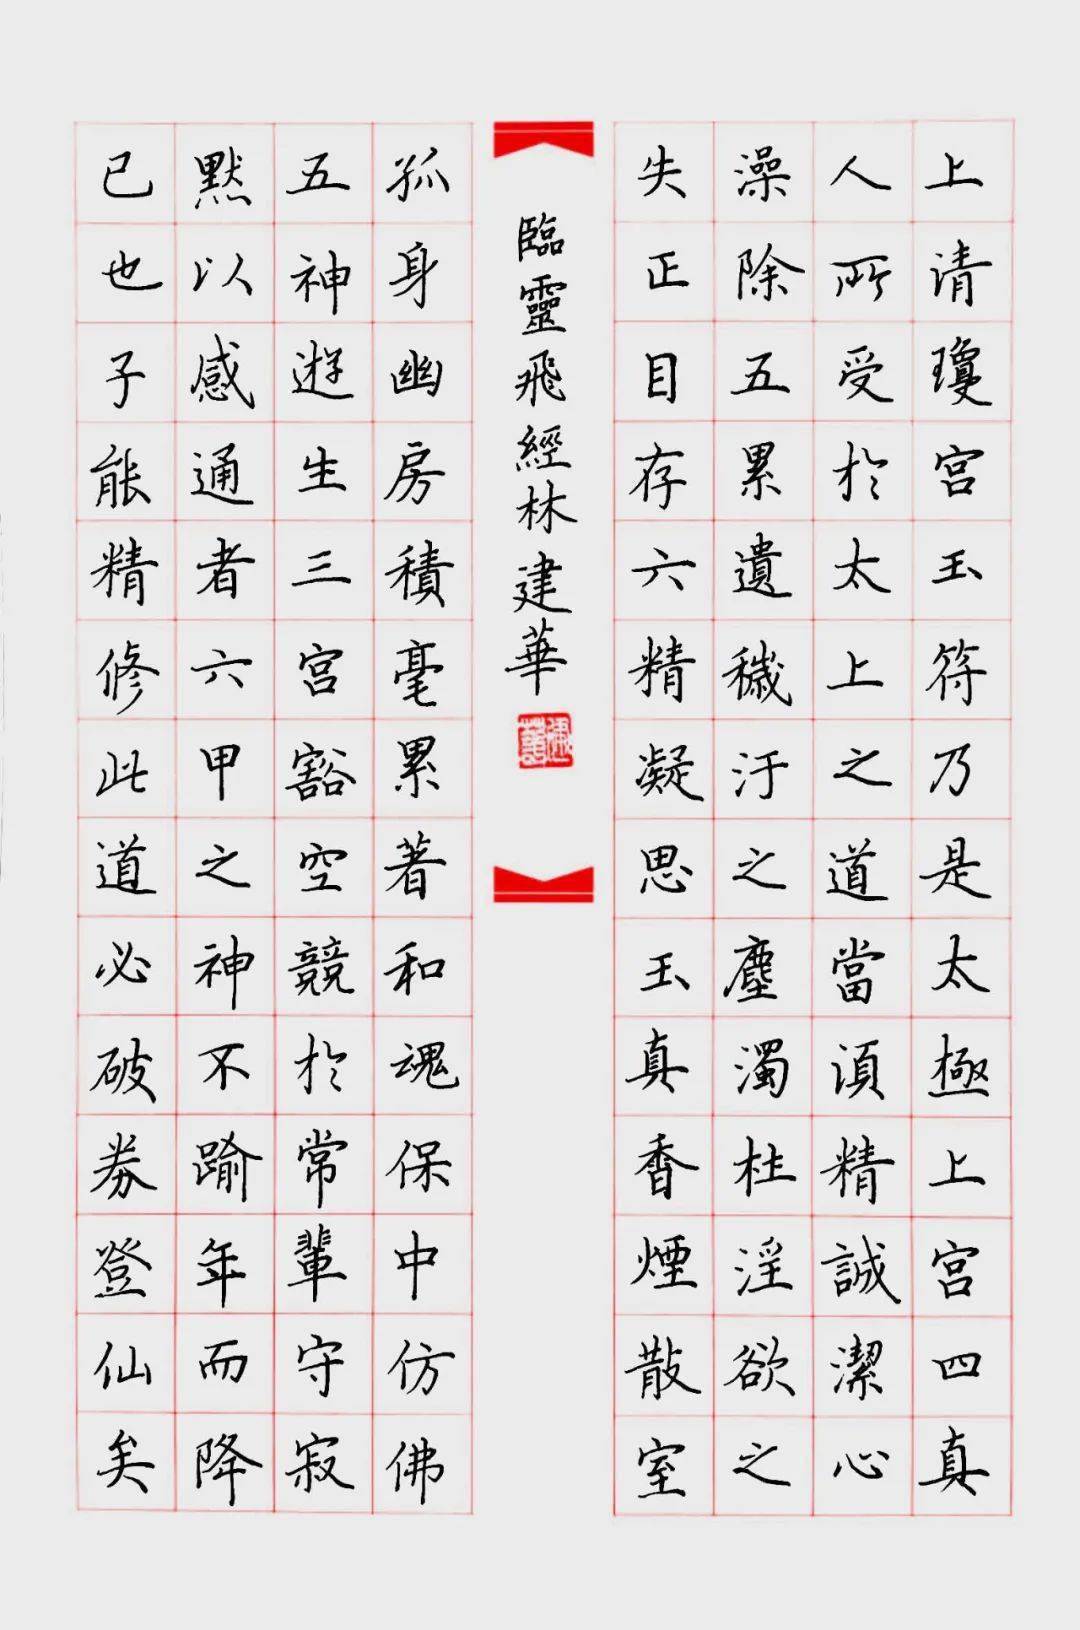 上清瓊宫玉符乃是太極上宫四真
人所受於太上之道當湏精誠潔心
澡除五累遺穢汙之塵濁杜淫欲之
失正目存六精凝思玉真香煙散室
臨靈飛經林建華
建華
孤身幽房積毫累著和魂保中仿佛
五神遊生三宫豁空競於常輩守寂
默以感通者六甲之神不踰年而降
已也子能精修此道必破券登仙矣